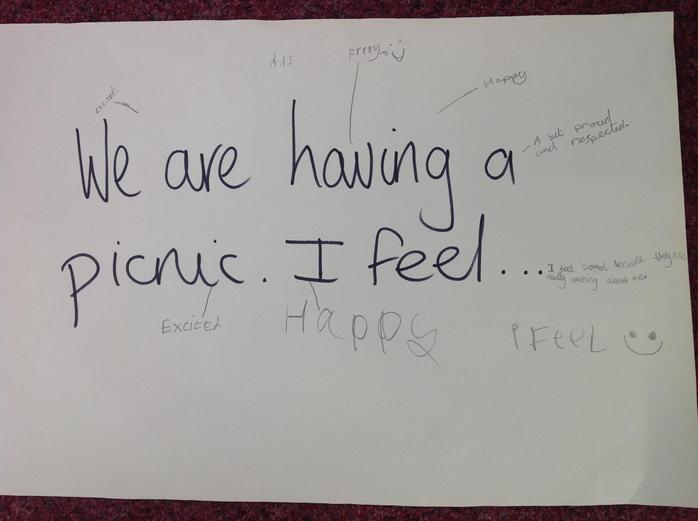 Freey :)
Happy
We are having a
A bit proud
and respected.
picnic. I feel...
I feel because they are
really about me
Excited
Happy
i FeeL